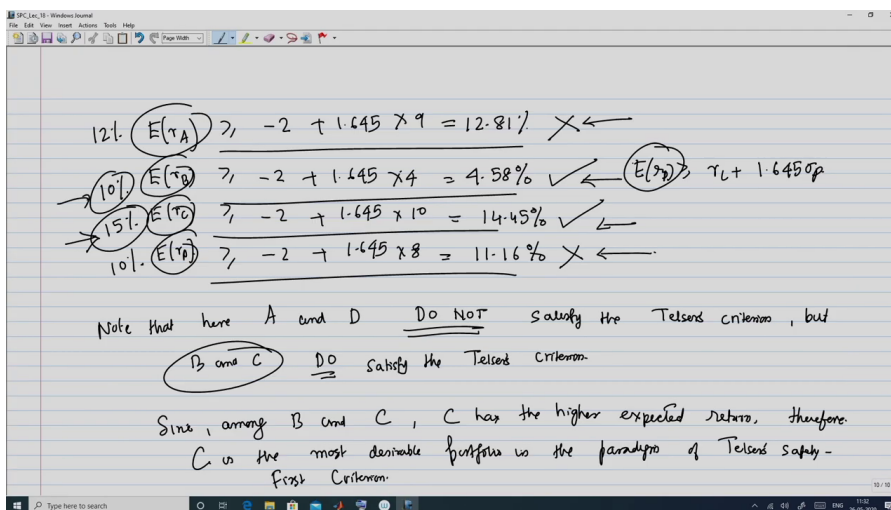 SPC_Lec_18 - Windows Journal
File Edit View Insert Actions Tools Help
Page Width
12% E(rA) ⩾ -2 + 1.645 × 9 = 12.81% ✗ ←
→ 10% E(rB) ⩾ -2 + 1.645 × 4 = 4.58% ✓ ← E(rp) ⩾ rL + 1.645σp
→ 15% E(rC) ⩾ -2 + 1.645 × 10 = 14.45% ✓ ←
10% E(rD) ⩾ -2 + 1.645 × 8 = 11.16% ✗ ←
Note that here A and D DO NOT satisfy the Telser's criterion, but
B and C DO satisfy the Telser's criterion.
Since, among B and C, C has the higher expected return, therefore.
C is the most desirable portfolio in the paradigm of Telser's Safety-
First Criterion.
10 / 10
Type here to search
ENG
11:32